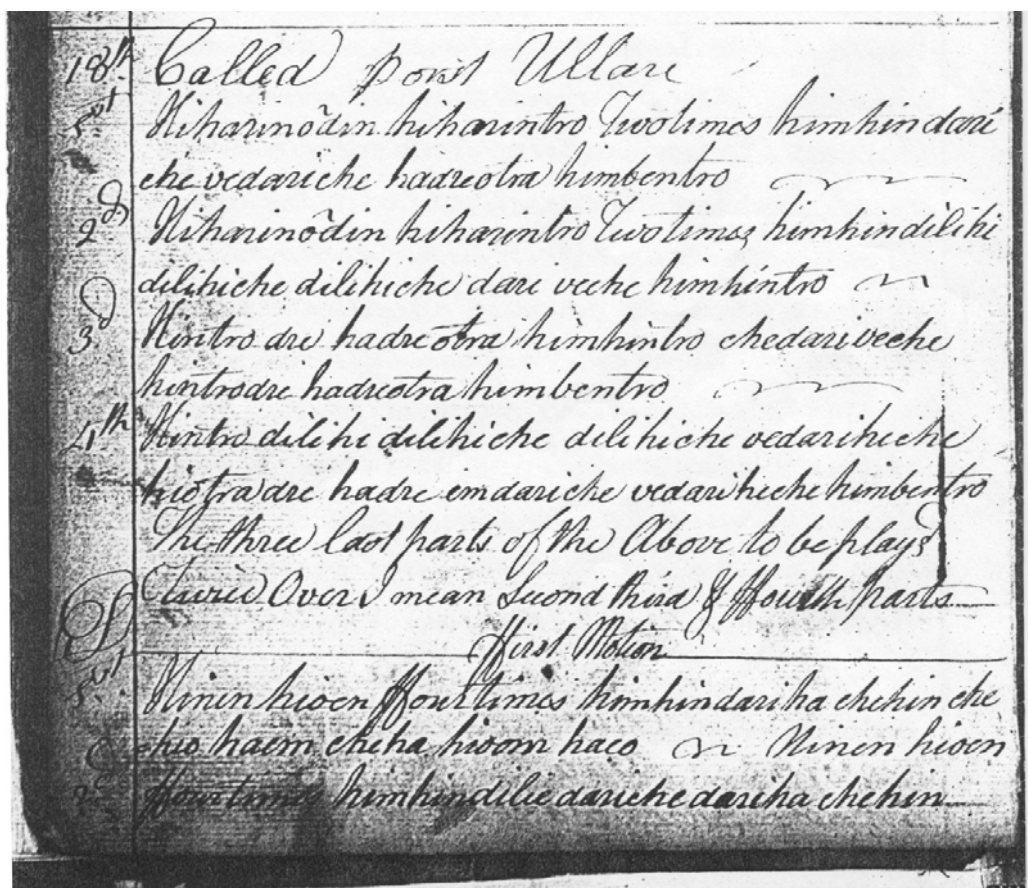 18th Called port Ullare
1st Hiharinodin hiharintro Twotimes himhindari
che vedariche hadreotra himbentro
2d Hiharinodin hiharintro Twotimes himhindilihi
dilihiche dilihiche dari veche himhintro
3d Hintro dre hadreotra himhintro chedariveche
hintrodre hadreotra himbentro
4th Hintro dilihi dilihiche dilihiche vedariheche
hiotradre hadre emdariche vedariheche himbentro
The three last parts of the Above to be playd
Twice Over I mean Second third & ffourth parts
ffirst Motion
1st Hinen hioen ffourtimes himhindariha chehinche
chio haem cheha hioom haeo Hinen hioen
2d ffourtimes himhindilie dariche dariha chehin